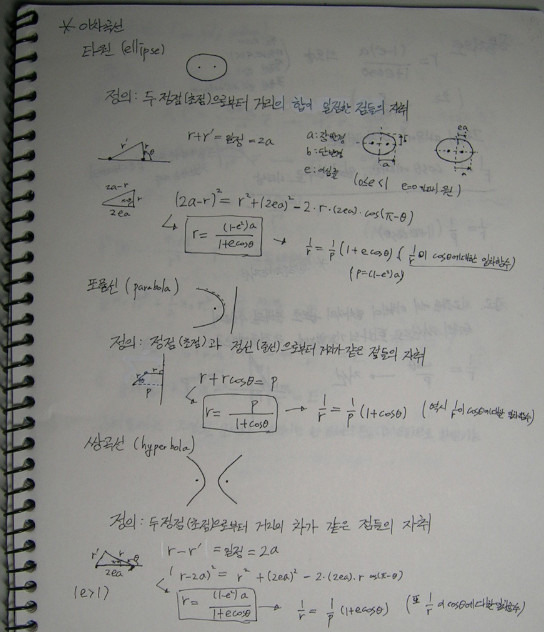 * 이차곡선
타원 (ellipse)
정의: 두 정점(초점)으로부터 거리의 합이 일정한 점들의 자취
r+r' = 일정 = 2a
a: 장반경
b: 단반경
e: 이심률
(0≤e<1 e=0 이면 원)
r' r θ
b a
ea a
2a-r r 2ea
(2a-r)² = r² + (2ea)² - 2·r·(2ea)·cos(π-θ)
↳ r = (1-e²)a / 1+ecosθ → 1/r = 1/p (1+ecosθ) (1/r이 cosθ에 대한 일차함수)
(p=(1-e²)a)
포물선 (parabola)
정의: 정점(초점)과 직선(준선)으로부터 거리가 같은 점들의 자취
r θ p
r + rcosθ = p
↳ r = p / 1+cosθ → 1/r = 1/p (1+cosθ) (역시 1/r이 cosθ에 대한 일차함수)
쌍곡선 (hyperbola)
정의: 두 정점(초점)으로부터 거리의 차가 같은 점들의 자취
r' r θ 2ea
r-r' = 일정 = 2a
(r-2a)² = r² + (2ea)² - 2·(2ea)·r cos(π-θ)
(e>1)
↳ r = (1-e²)a / 1+ecosθ → 1/r = 1/p (1+ecosθ) (또 1/r이 cosθ에 대한 일차함수)